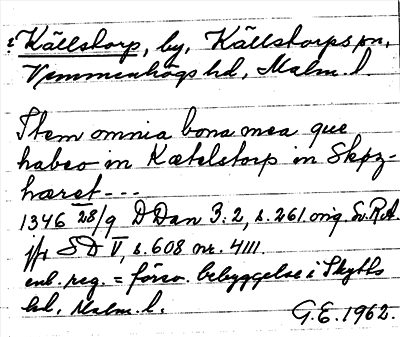 Källstorp, by, Källstorps sn,
Vemmenhögs hd, Malm. l.
Item omnia bona mea que
habeo in Kætelstorp in Skytz-
hæret---
1346 28/9 DDan 3:2, s. 261 orig Sv.R.A.
jfr SD V, s. 608 nr. 4111.
enl. reg. = försv. bebyggelse i Skytts
hd, Malm. l.
G.E. 1962.